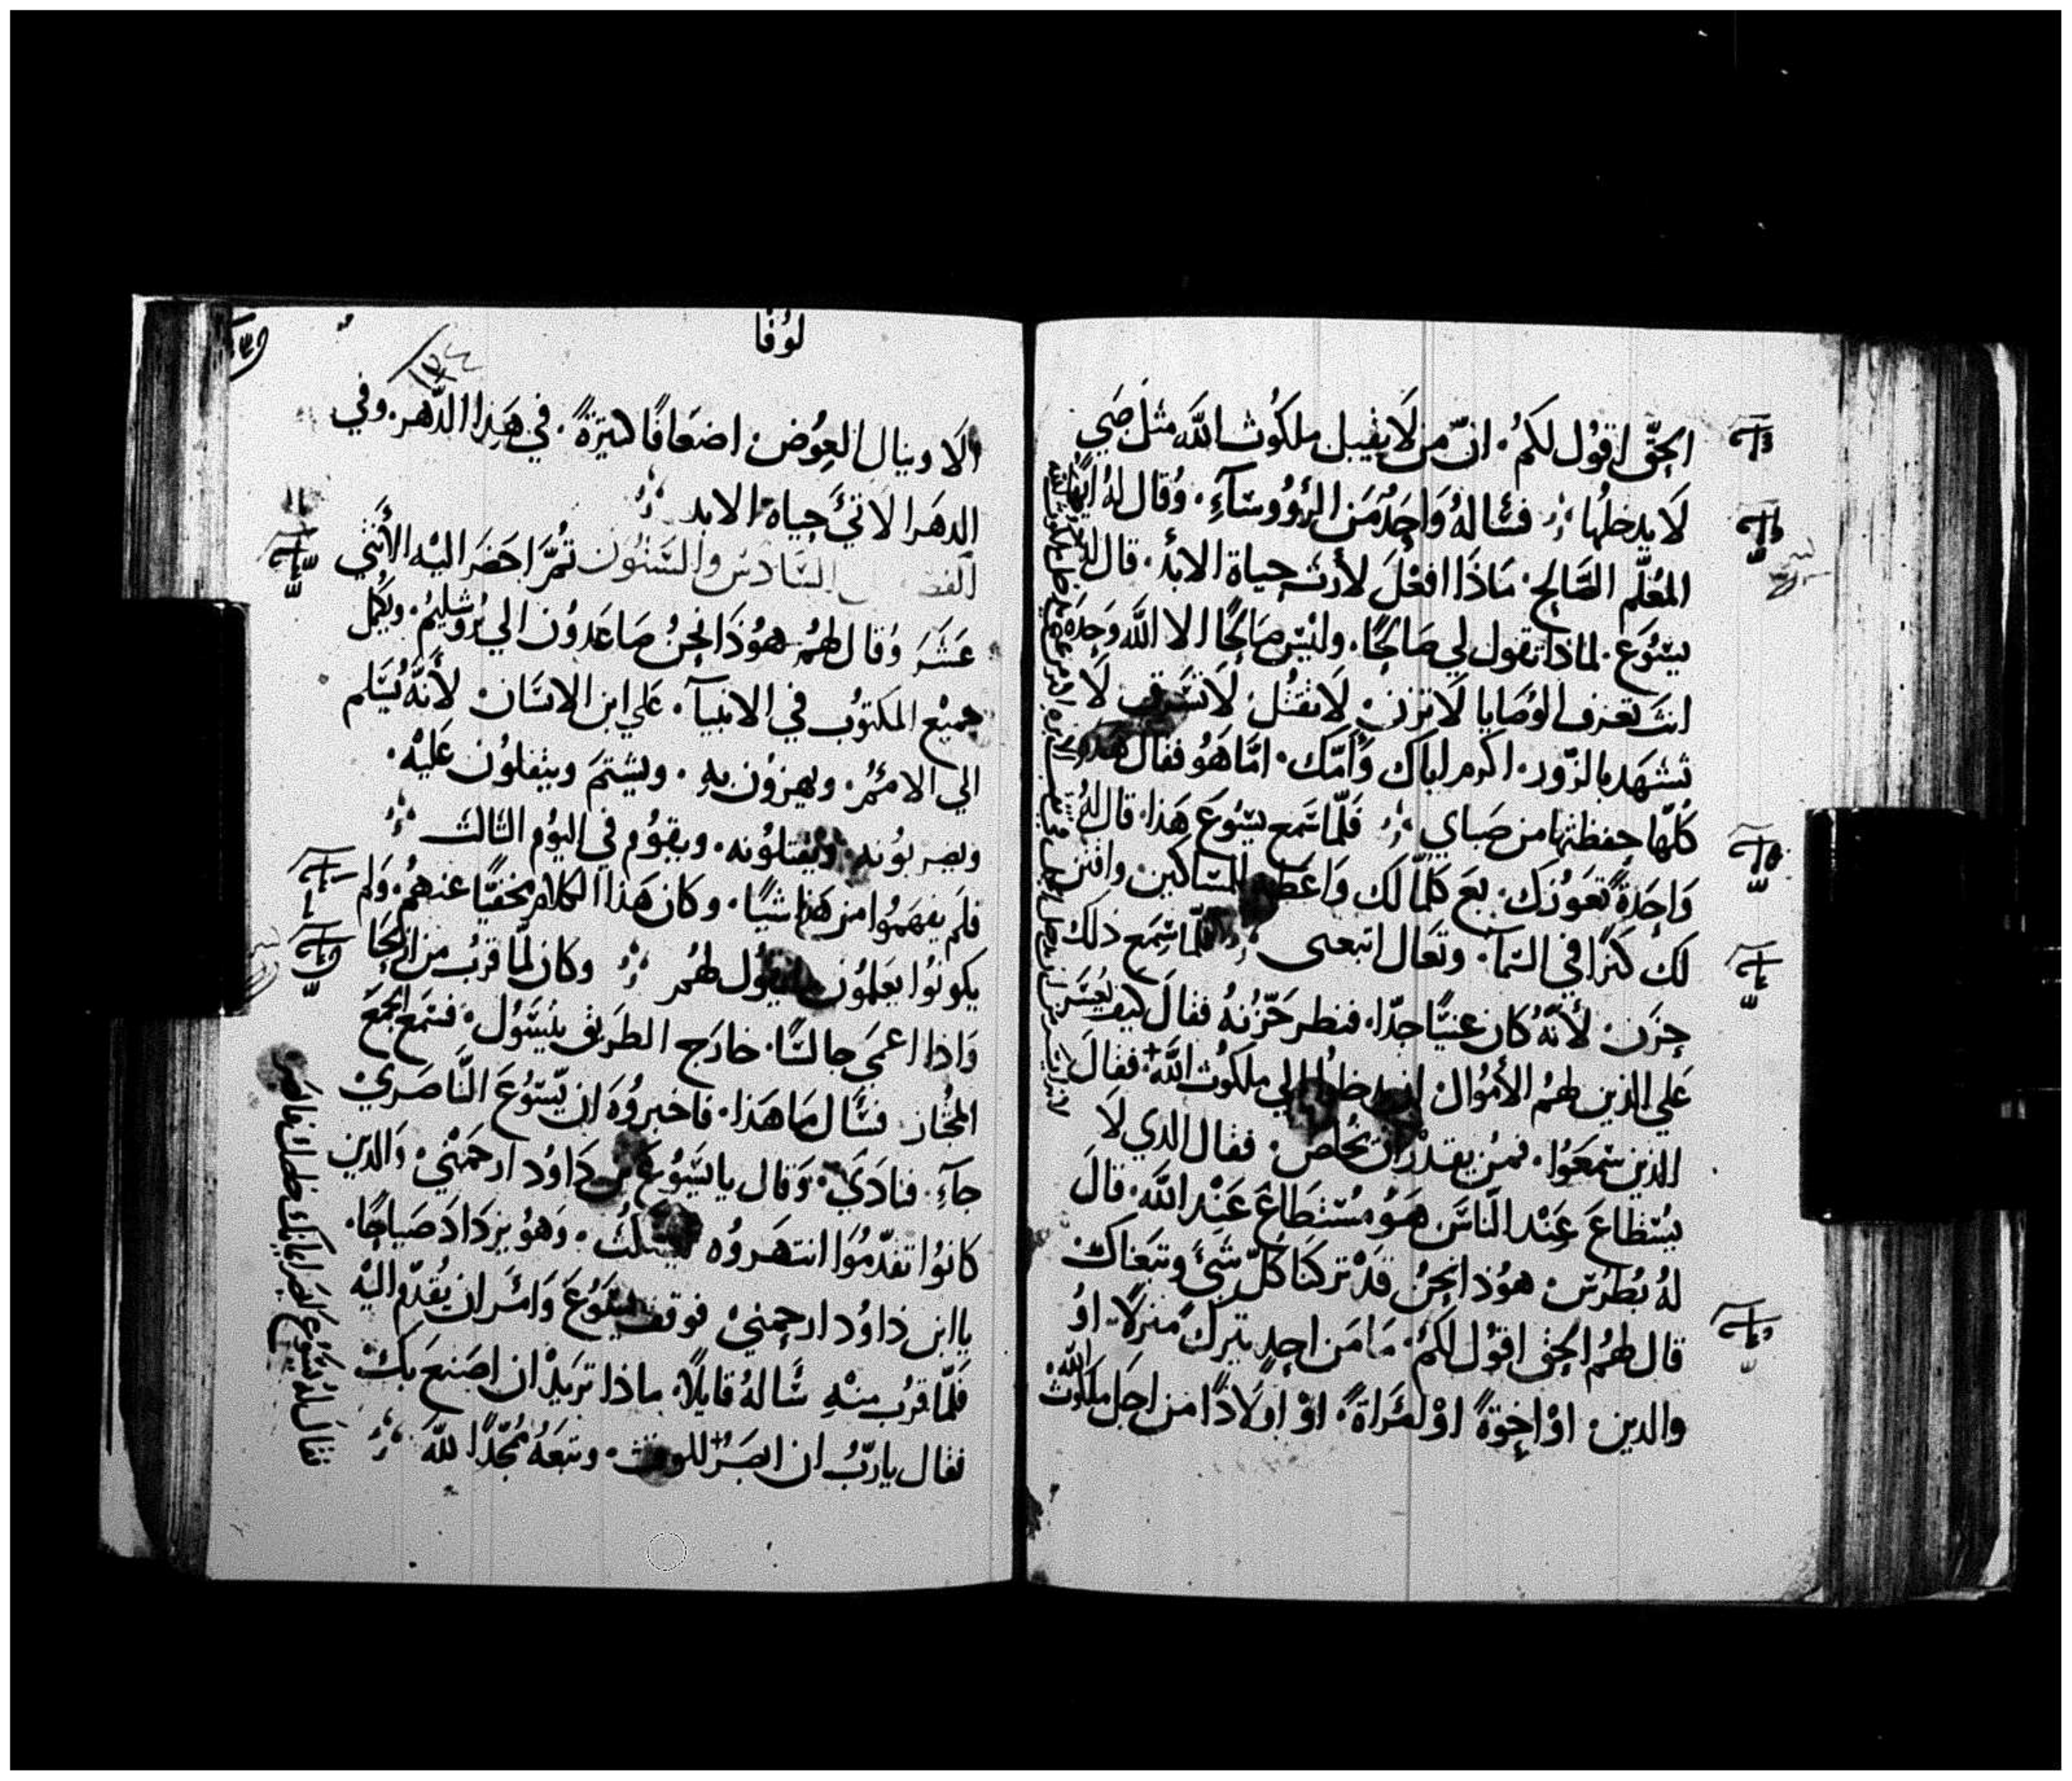 الحق اقول لكم. ان من لا يقبل ملكوت الله مثل صبي
لا يدخلها فساله واحد من الرووسآء. وقال له ايها
المعلم الصالح. ماذا افعل لأرث حياة الابد. قال له
يسوع. لماذا تقول لي صالحًا. وليس صالحًا الا الله وحده
انت تعرف الوصايا لا تزن. لا تقتل. لا تسرق. لا
تشهد بالزور. اكرم اباك وأمك. اما هو فقال هذه
كلها حفظتها من صباي فلما سمع يسوع هذا. قال له
واحدة تعوزك. بع كلما لك واعط المساكين واقتن
لك كنزا في السمآ. وتعال اتبعنى فلما سمع ذلك
حزن. لأنه كان غنيًا جدّا. فنظر حزنه فقال كيف يعسر
على الذين لهم الأموال ان يدخلوا الي ملكوت الله + فقال
الذين سمعوا. فمن يقدر ان يخلص. فقال الدي لا
يستطاع عند الناس هو مستطاع عند الله. قال
له بطرس هوذا نحن قد تركنا كل شيء وتبعناك
قال لهم الحق اقول لكم. ما من احد يترك منزلًا. او
والدين. او اخوةً او امراةً. او اولادًا من اجل ملكوت الله
لوقا
الا وينال العوض اضعافًا كثيرةً. في هذا الدهر. وفي
الدهر الاتي حياة الابد
السادس والستون ثم احضر اليه الأثني
عشر وقال لهم هوذا نحن صاعدون الي يروشليم. ويكمل
جميع المكتوب في الانبيآ. علي ابن الانسان لأنه يسلم
الي الامم. ويهزون به. ويشتم ويتفلون عليه.
ويضربونه. ويقتلونه. ويقوم في اليوم الثالث
فلم يفهموا من هذا شيًا. وكان هذا الكلام مخفيًا عنهم. ولم
يكونوا يعلمون ما يقول لهم وكان لما قرب من اريحا
واذا اعمى جالسًا. خارج الطريق يتسول. فسمع الجمع
المجتاز فسال ما هذا. فاخبروه ان يسوع الناصري
جآء. فنادي. وقال يا يسوع بن داود ارحمني. والدين
كانوا تقدموا انتهروه ليسكت. وهو يزداد صياحًا.
يا ابن داود ارحمني فوقف يسوع وامر ان يقدم اليه
فلما قرب منه ساله قايلًا. ماذا تريد ان اصنع بك
فقال يا رب ان ابصر + للوقت. وتبعه ممجدًا لله
فقال له يسوع ابصر ايمانك خلصك